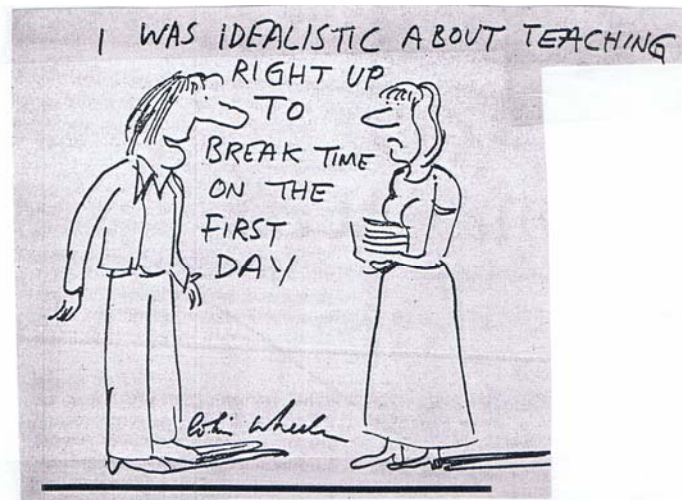 I WAS IDEALISTIC ABOUT TEACHING
RIGHT UP
TO
BREAK TIME
ON THE
FIRST
DAY
Colin Wheeler